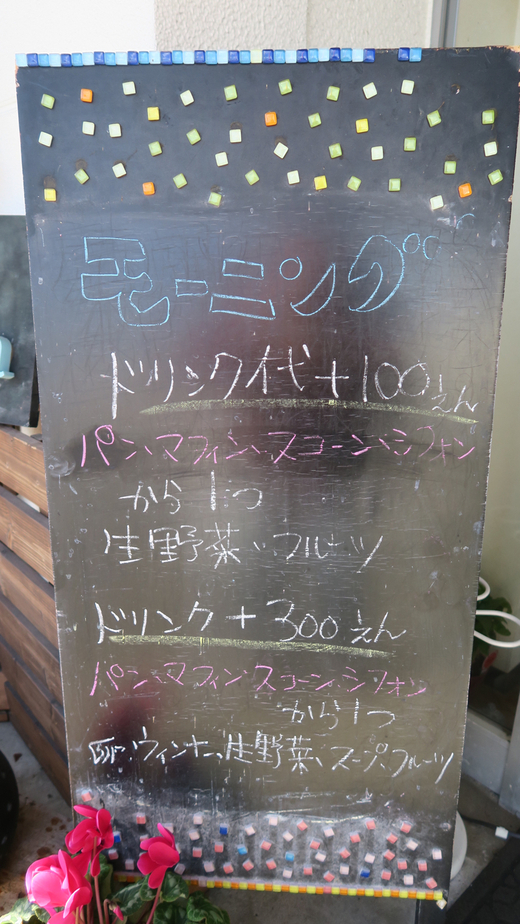 モーニング
ドリンク代+100えん
パン、マフィン、スコーン、シフォン
から1つ
生野菜、フルーツ
ドリンク+300えん
パン、マフィン、スコーン、シフォン
から1つ
卵、ウィンナー、生野菜、スープ、フルーツ